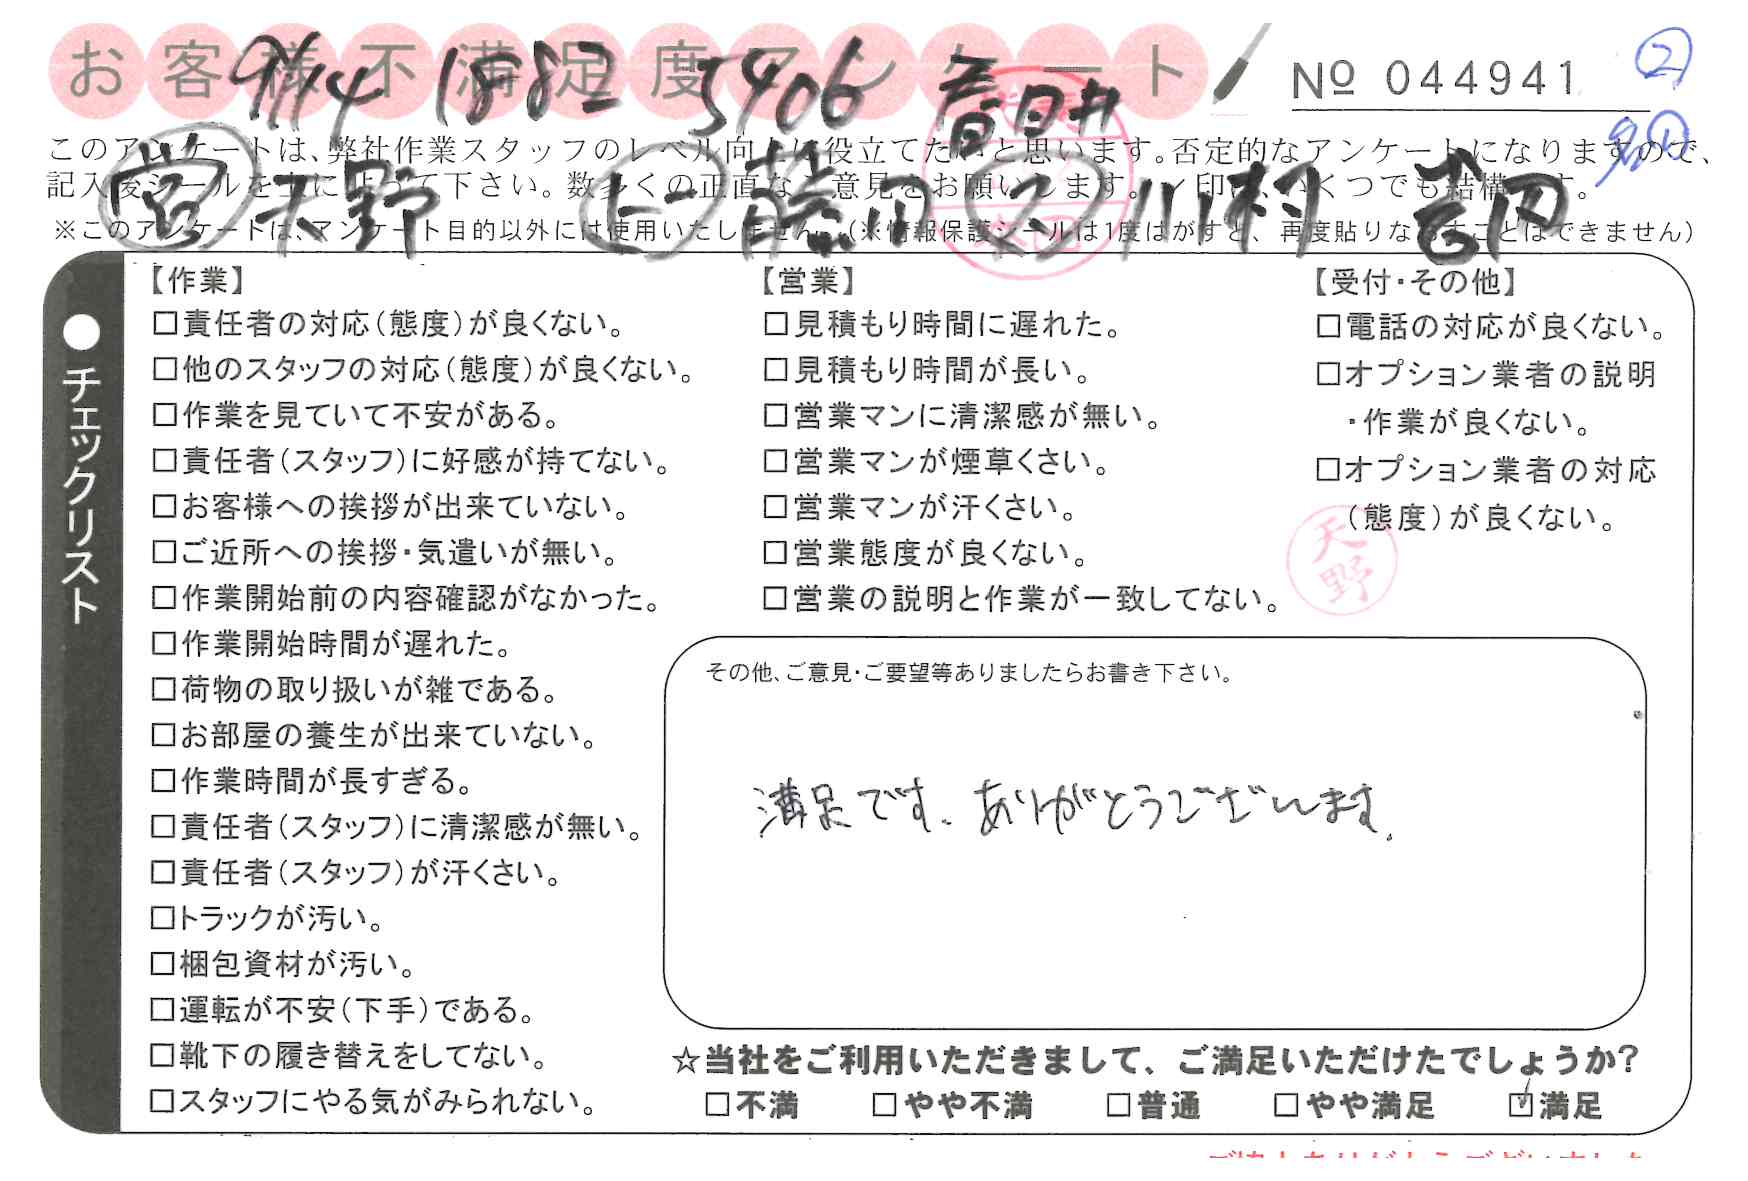 お客様不満足度アンケート
Nº 044941
②
9/14 1882 5406 春日井
このアンケートは、弊社作業スタッフのレベル向上に役立てたいと思います。否定的なアンケートになりますので、
記入後シールを上にはって下さい。数多くの正直なご意見をお願いします。✓印は、いくつでも結構です。
営 天野 川村 吉田
※このアンケートは、アンケート目的以外には使用いたしません。(※情報保護シールは1度はがすと、再度貼りなおすことはできません)
●チェックリスト
【作業】
□責任者の対応(態度)が良くない。
□他のスタッフの対応(態度)が良くない。
□作業を見ていて不安がある。
□責任者(スタッフ)に好感が持てない。
□お客様への挨拶が出来ていない。
□ご近所への挨拶・気遣いが無い。
□作業開始前の内容確認がなかった。
□作業開始時間が遅れた。
□荷物の取り扱いが雑である。
□お部屋の養生が出来ていない。
□作業時間が長すぎる。
□責任者(スタッフ)に清潔感が無い。
□責任者(スタッフ)が汗くさい。
□トラックが汚い。
□梱包資材が汚い。
□運転が不安(下手)である。
□靴下の履き替えをしてない。
□スタッフにやる気がみられない。
【営業】
□見積もり時間に遅れた。
□見積もり時間が長い。
□営業マンに清潔感が無い。
□営業マンが煙草くさい。
□営業マンが汗くさい。
□営業態度が良くない。
□営業の説明と作業が一致してない。
【受付・その他】
□電話の対応が良くない。
□オプション業者の説明
・作業が良くない。
□オプション業者の対応
(態度)が良くない。
天野
その他、ご意見・ご要望等ありましたらお書き下さい。
満足です。ありがとうございます。
☆当社をご利用いただきまして、ご満足いただけたでしょうか?
□不満 □やや不満 □普通 □やや満足 ☑満足